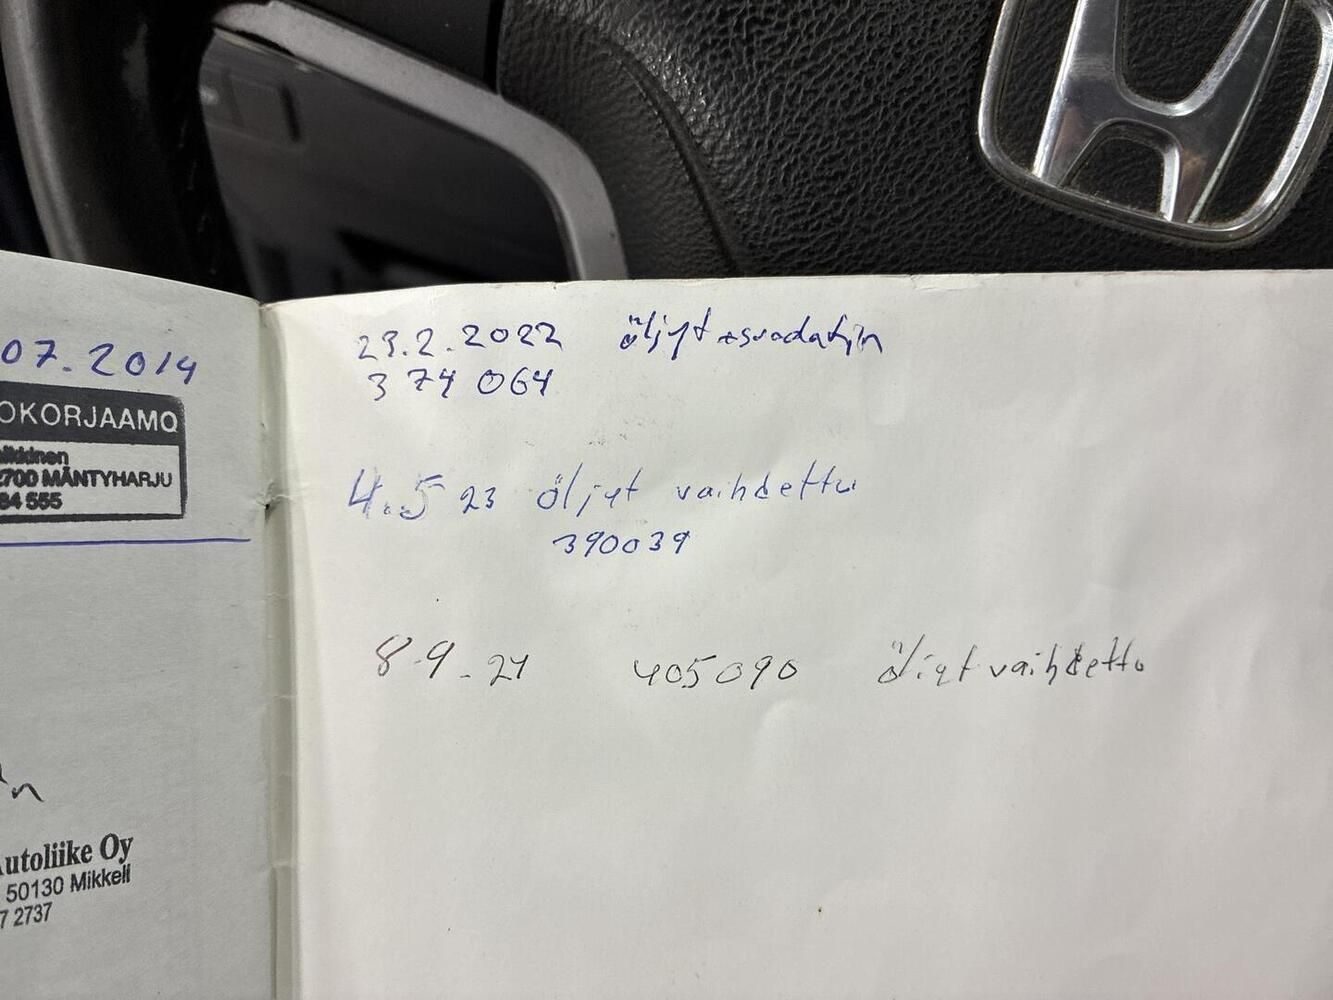 07.2014
OKORJAAMO
2700 MÄNTYHARJU
84 555
utoliike Oy
50130 Mikkeli
7 2737
23.2.2022 öljyt
374 064
4.5 23 öljyt vaihdettu
390039
8-9-24 405090 öljyt vaihdettu